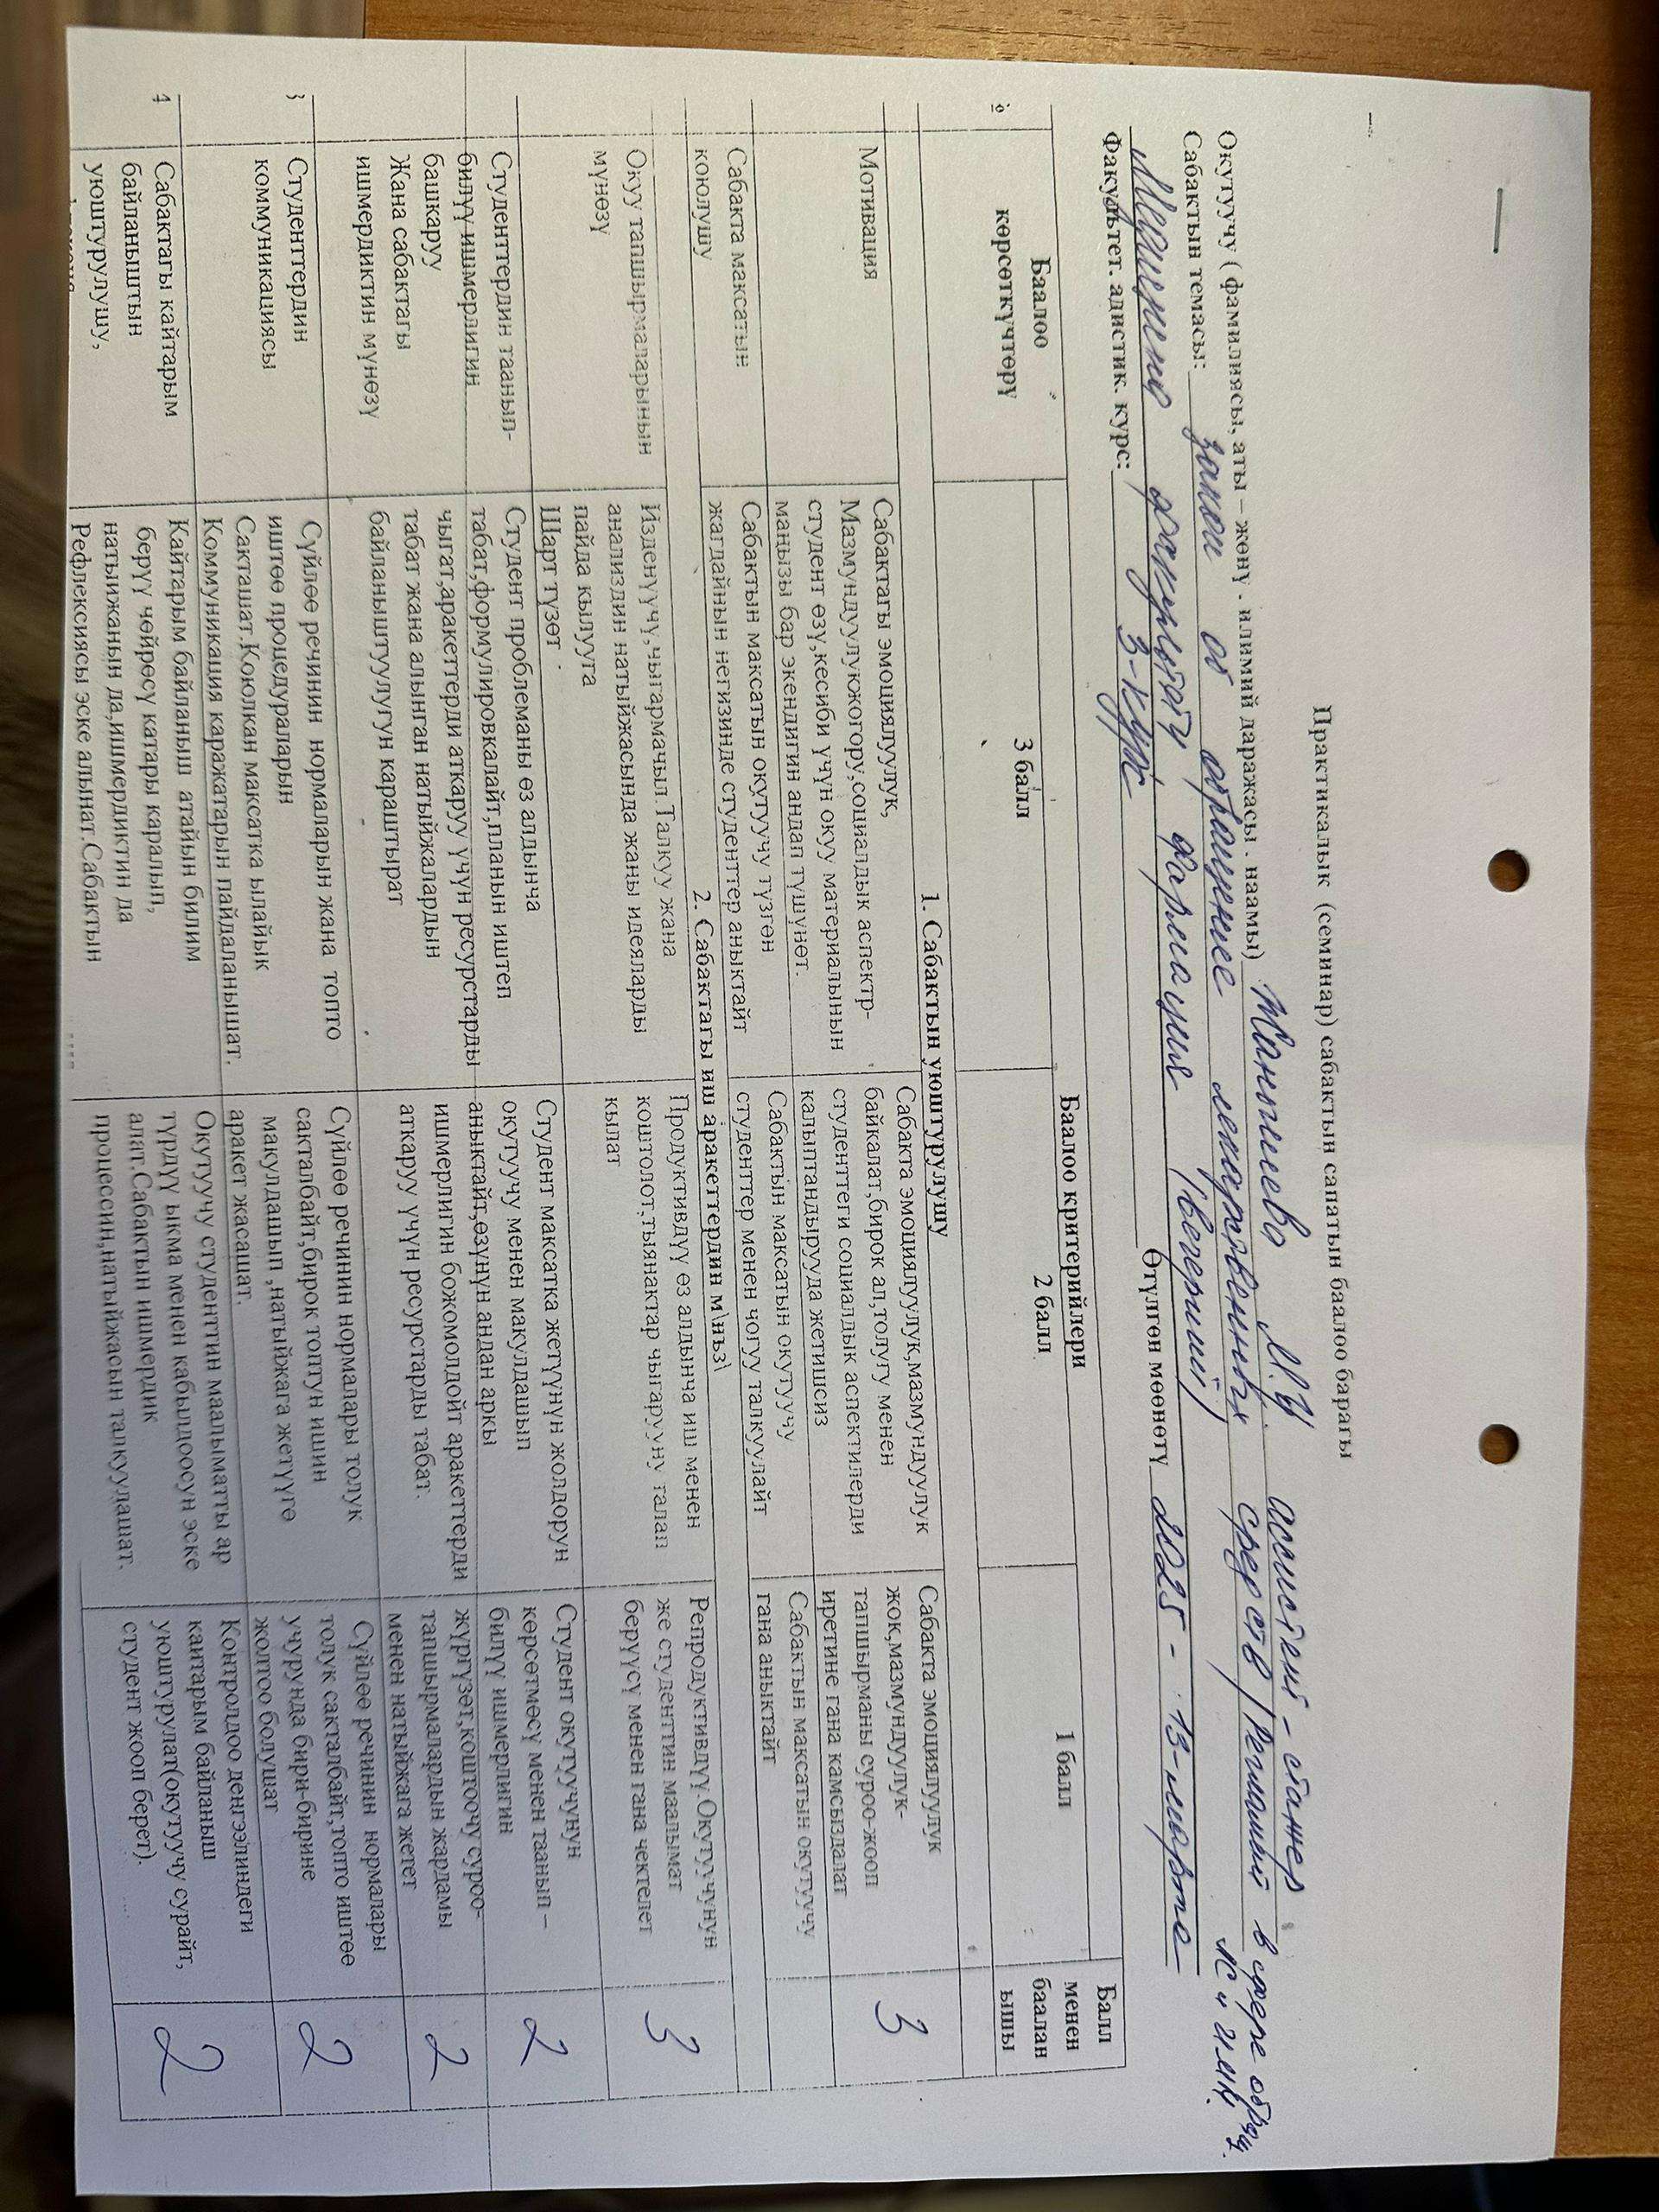 Практикалык (семинар) сабактын сапатын баалоо барагы
Окутуучу ( фамилиясы, аты – жөнү . илимий даражасы . наамы) М.У. ассистент - стажер
Сабактын темасы: закон об обращение лекарственных средств в сфере обращ. ЛС и ИМН.
Медицина факультети, Фармация (вечерний)
Факультет. адистик. курс: 3-курс Өтүлгөн мөөнөтү 2025 - 13-марта
Баалоо көрсөткүчтөрү
Баалоо критерийлери
Балл менен баалан ышы
3 балл
2 балл
1 балл
1. Сабактын уюштурулушу
Мотивация
Сабактагы эмоциялуулук,
Мазмундуулукжогору,социалдык аспектр-
студент өзү,кесиби үчүн окуу материалынын
маңызы бар экендигин андап түшүнөт.
Сабакта эмоциялуулук,мазмундуулук
байкалат,бирок ал,толугу менен
студенттеги социалдык аспектилерди
калыптандырууда жетишсиз
Сабакта эмоциялуулук
жок,мазмундуулук-
тапшырманы суроо-жооп
иретине гана камсыздалат
3
Сабакта максатын
коюлушу
Сабактын максатын окутуучу түзгөн
жагдайнын негизинде студенттер аныктайт
Сабактын максатын окутуучу
студенттер менен чогуу талкуулайт
Сабактын максатын окутуучу
гана аныктайт
2. Сабактагы иш аракеттердин м\нъз\
Окуу тапшырмаларынын
мүнөзү
Изденүүчү,чыгармачыл.Талкуу жана
анализдин натыйжасында жаны идеяларды
пайда кылууга
Шарт түзөт
Продуктивдүү өз алдынча иш менен
коштолот,тыянактар чыгарууну талап
кылат
Репродуктивдүү.Окутуучунун
же студенттин маалымат
берүүсү менен гана чектелет
3
Студенттердин таанып-
билүү ишмердигин
башкаруу
Жана сабактагы
ишмердиктин мүнөзү
Студент проблеманы өз алдынча
табат,формулировкалайт,планын иштеп
чыгат,аракеттерди аткаруу үчүн ресурстарды
табат жана алынган натыйжалардын
байланыштуулугун караштырат
Студент максатка жетүүнүн жолдорун
окутуучу менен макулдашып
аныктайт,өзүнүн андан аркы
ишмерлигин божомолдойт аракеттерди
аткаруу үчүн ресурстарды табат.
Студент окутуучунун
көрсөтмөсү менен таанып –
билүү ишмерлигин
жүргүзөт,коштоочу суроо-
тапшырмалардын жардамы
менен натыйжага жетет
2
2
3
Студенттердин
коммуникациясы
Сүйлөө речинин нормаларын жана топто
иштөө процедураларын
Сакташат.Коюлкан максатка ылайык
Коммуникация каражатарын пайдаланышат.
Сүйлөө речинин нормалары толук
сакталбайт,бирок топтун ишин
макулдашып ,натыйжага жетүүгө
аракет жасашат.
Сүйлөө речинин нормалары
толук сакталбайт,топто иштөө
учурунда бири-бирине
жолтоо болушат
2
4
Сабактагы кайтарым
байланыштын
уюштурулушу,
Кайтарым байланыш атайын билим
берүү чөйрөсү катары каралып,
натыйжанын да,ишмердиктин да
Рефлексиясы эске алынат.Сабактын
Окутуучу студенттин маалыматты ар
түрдүү ыкма менен кабылдоосун эске
алат.Сабактын ишмердик
процессин,натыйжасын талкуулашат.
Контролдоо деңгээлиндеги
кайтарым байланыш
уюштурулат(окутуучу сурайт,
студент жооп берет).
2